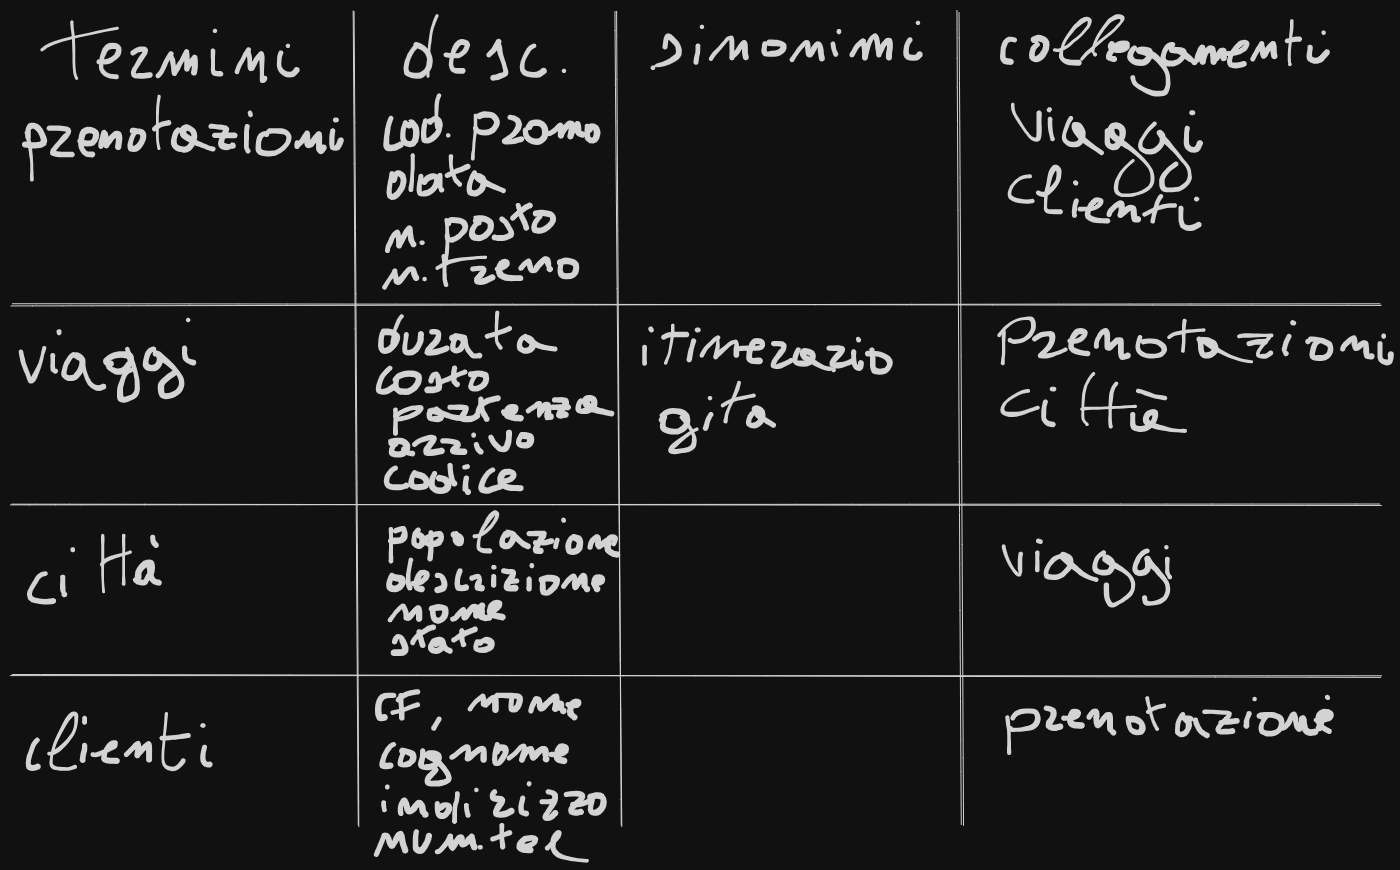 Termini desc. sinonimi collegamenti
prenotazioni
cod. promo
data
n. posto
n. treno
viaggi
clienti
viaggi
durata
costo
partenza
arrivo
codice
itinerario
gita
Prenotazioni
città
città
popolazione
descrizione
nome
stato
viaggi
clienti
CF, nome
cognome
indirizzo
num.tel
prenotazione